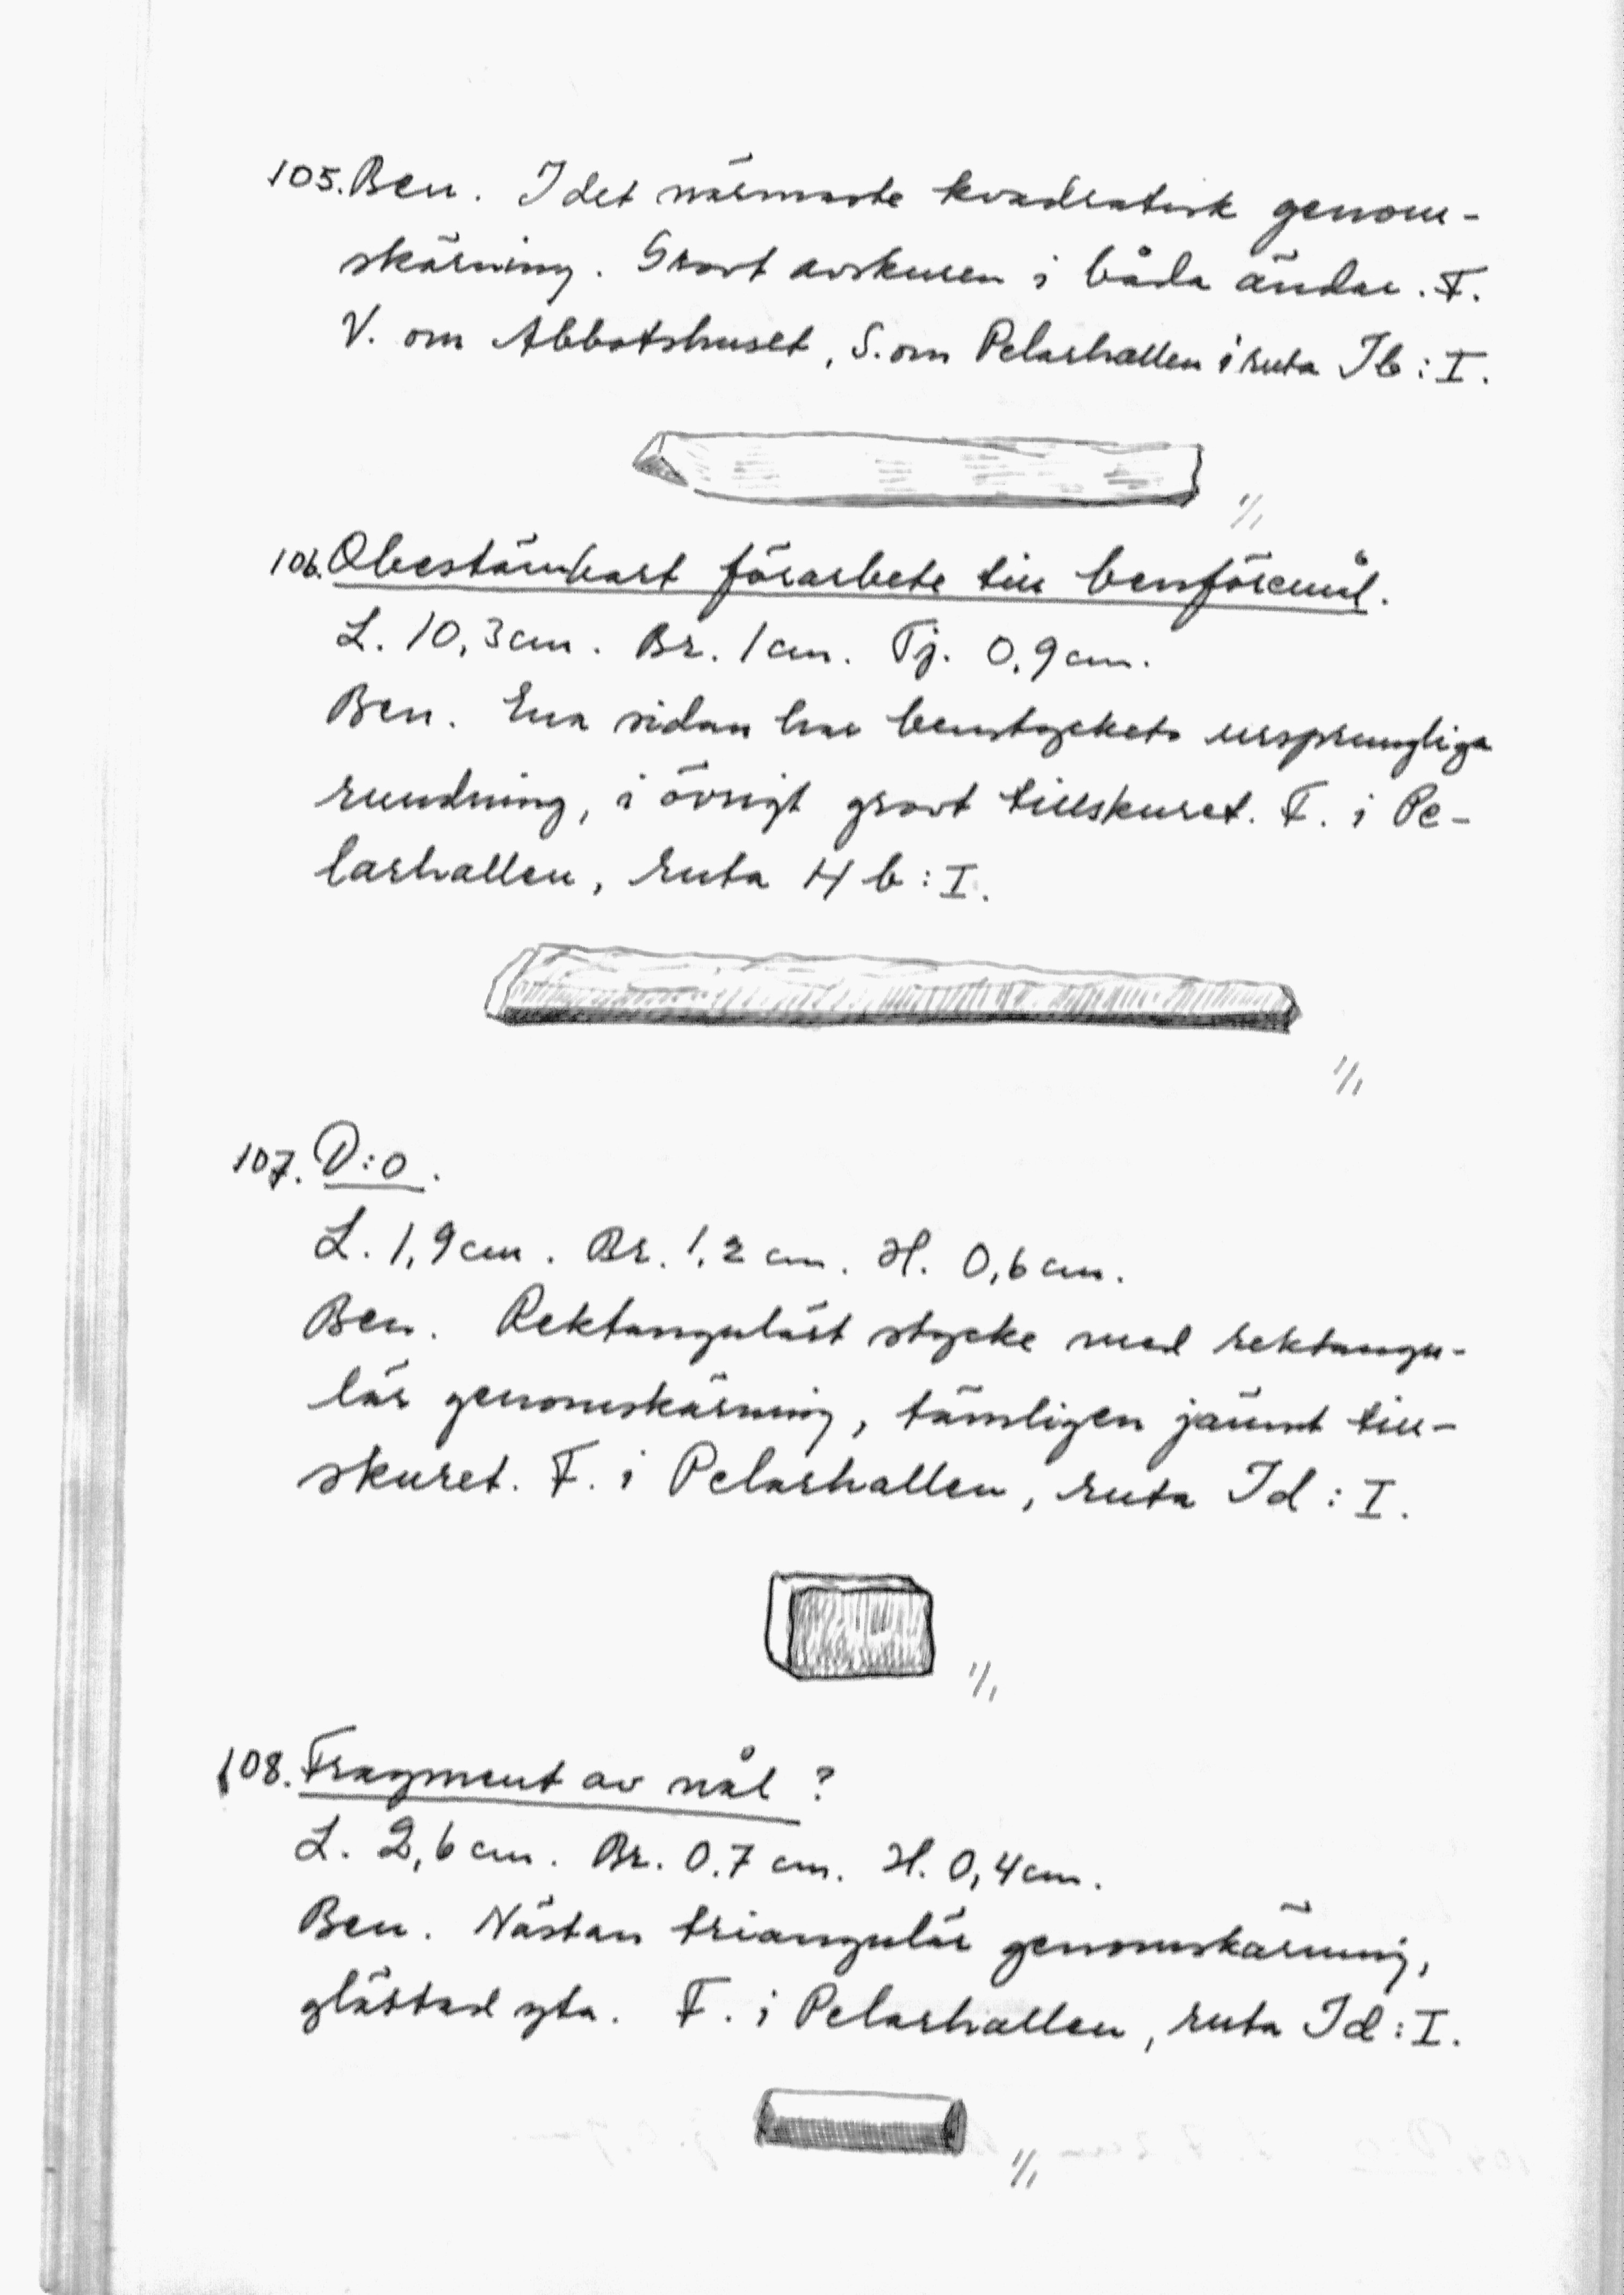 105. Ben. I det närmaste kvadratisk genom-
skärning. Grovt avskuren i båda ändar. F.
V. om Abbotshuset, S. om Pelarhallen i ruta Ib : I.
1/1
106. Obestämbart förarbete till benföremål.
L. 10,3 cm. Br. 1 cm. Tj. 0,9 cm.
Ben. Ena sidan har benstyckets ursprungliga
rundning, i övrigt grovt tillskuret. F. i Pe-
larhallen, ruta H b : I.
1/1
107. D:o.
L. 1,9 cm. Br. 1,2 cm. H. 0,6 cm.
Ben. Rektangulärt stycke med rektangu-
lär genomskärning, tämligen jämnt till-
skuret. F. i Pelarhallen, ruta Id : I.
1/1
108. Fragment av nål ?
L. 2,6 cm. Br. 0,7 cm. H. 0,4 cm.
Ben. Nästan triangulär genomskärning,
glättad yta. F. i Pelarhallen, ruta Id : I.
1/1